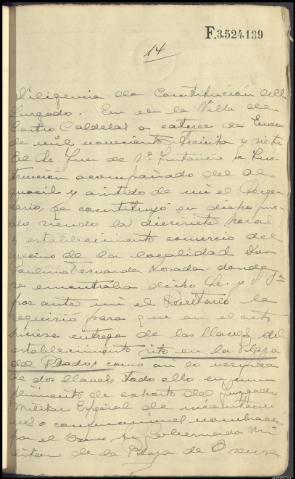 F.3.524.139
14
Diligencia de Constitución del
Juzgado. En la Villa de
Castro Caldelas a catorce de Enero
de mil novecientos treinta y siete
el Sr. Juez de 1ª Instancia e Ins-
trucción acompañado del al
guacil y asistido de mi el Secre
tario, se constituyó en
siendo las diecisiete horas
establecimiento comercio del
vecino de la localidad Don
donde
se encontraba dicho Sr. y
por ante mi el Secretario le
requirió para que en el acto
hiciese entrega de las llaves del
establecimiento sito en la Plaza
del Prado, como así lo
de dos llaves todo ello en cum
plimiento de exhorto del Juzgado
Militar Especial de incautacio
nes
por el Gobernador Mi
litar de la Plaza de Orense